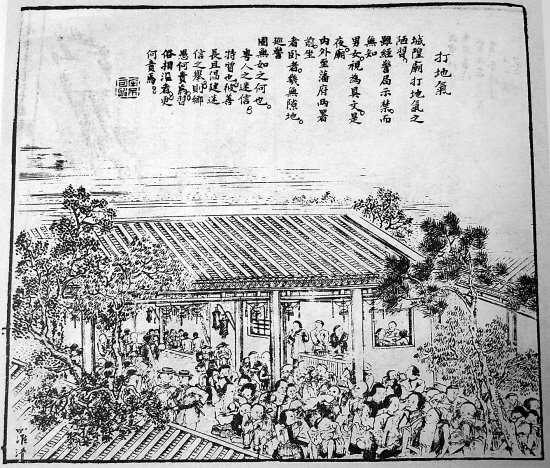 打地氣
城隍廟打地氣之
陋習。
雖經警局示禁。而
無知
男女。視為具文。是
夜廟
內外至藩府兩署
前。坐
者臥者。幾無隙地。
巡警
無如之何也。
粵人之迷信。
特習也。彼善
長且倡建迷
信之舉。則鄉
愚何責焉。習
俗相沿者更
何責焉。